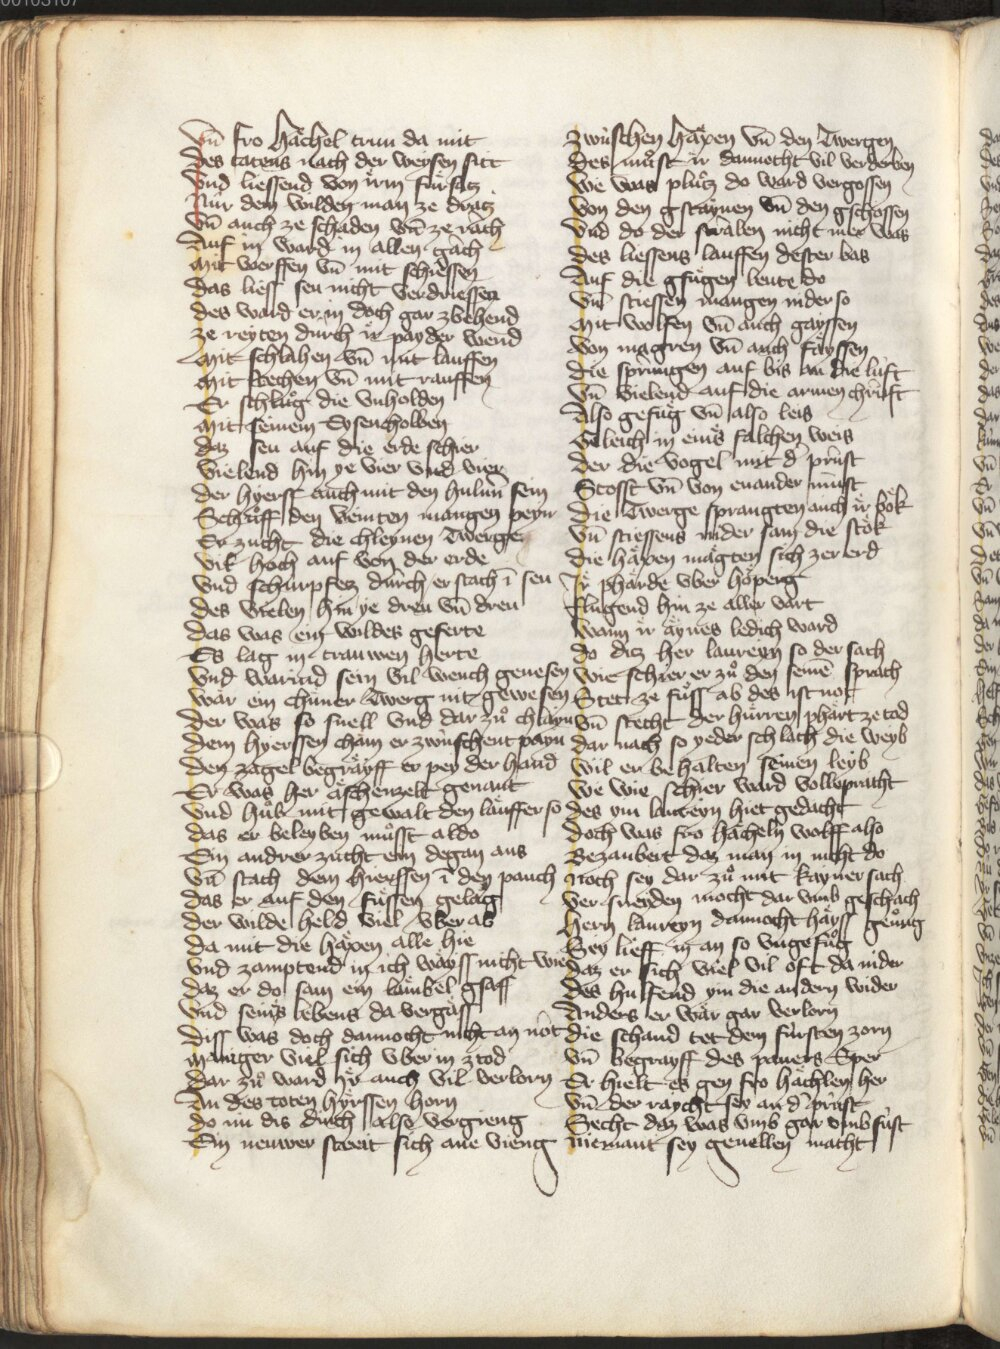 Vn̄ fro Hächel trun da mit
Des tatens nach der weysen sitt
Vnd liessend von irm fürsatz
Nur dem wilden man ze dratz
Vn̄ auch ze schaden vn̄ ze rach
Auf in ward in allen gach
Mit werffen vn̄ mit schiessen
Das liess seu nicht verdriessen
Des ward er in doch gar zbehend
Ze reyten durch ir payder wend
Mit schlahen vn̄ mit lauffen
Mit stechen vn̄ mit rauffen
Er schlůg die vnholden
Mit seinem Eysencholben
Daz seu auf die erde schier
Vielend hin ye vier vnd vier
Der hyerss auch mit den hulnn̄ sein
Schůff den veinten mangen peyn
Er zucht die chleynen Twerge
Vil hoch auf von der erde
Vnd schurpfetz durch er stach ī seu
Des vielen hin ye dreu vn̄ dreu
Das was ein wildes geferte
Es lag in trauwen herte
Vnd warind sein vil wench genesen
Wär ein chüner Twerg nit gewesen
Der was so snell vnd dar zů chlayn
Dem hyerssen cham er zwüschent payn
Den zagel begräyff er pey der hand
Er was her äschenzelt genant
Vnd hůb mit gewalt den läuffer so
Das er beleyben můsst aldo
Ein andrer zucht ein degan aus
Vn̄ stach dem hierssen ī den pauch
Das er auf den füssen gelag
Der wilde held viel vber ab
Da mit die häxen alle hie
Vnd zamptend in ich wayss nicht wie
Daz er do sam ein laubel gsass
Vnd seins lebens da vergass
Diss was doch dannocht nicht an not
Maniger viel sich vber in ztod
Dar zů ward ir auch vil verlorn
An des toten hyrssen horn
Do nu dis dinch also vergieng
Ein neuwer streit sich ane vieng
Zwüschen häxen vn̄ den Twergen
Des můst ir dannocht vil verderben
We was plůtz do ward vergossen
Von den gstaynen vn̄ den gschossen
Vnd do der stralen nicht mer was
Des liessens lauffen dester bas
Auf die gfügen leute do
Vn̄ stiessen mangen nider so
Mit wolfen vn̄ auch gayssen
Von magren vn̄ auch fayssen
Die sprungen auf bis an die luft
Vn̄ vielend auf die armen chrufft
Also gefüg vn̄ also leis
Geleich in eins falchen weis
Der die vogel mit d' prust
Stosst vn̄ von enander must
Die Twerge sprangten auch ir bök
Vn̄ stiessens nider sam die stök
Die häxen mägten sich zer erd
Ir phärde vber höperg
Flugend hin ze aller vart
Wann ir äynes ledich ward
Do ditz her laureyn so der sach
Wie schier er zů den seinē sprach
Stet ze füss ab des ist not
Vn̄ stecht der hurren phärt ze tod
Dar nach so yeder schlach die weyb
Wil er behalten seinen leyb
We wie schier ward vollepracht
Des ym laureyn hiet gedacht
Doch was fro hächeln wolff also
Bezaubert daz man in nicht do
Noch sey dar zů mit kayner sach
Versneyden mocht dar vmb geschach
Hern laureyn dannocht häyss genůg
Sey lieff in an so vngefůg
Daz er sich viel vil oft da nider
Des hulfend ym die andern wider
Anders er wär gar verlorn
Die schand tet dem fürsten zorn
Vn̄ begrayff des pauers Sper
Er hielt es gen fro hächlen her
Vn̄ der raycht sey an d' prust
Secht daz was vmb gar vmbsüst
Niemant sey geuellen macht